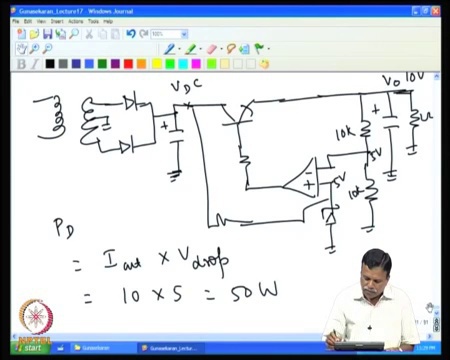 Gunasekaran_Lecture17 - Windows Journal
File Edit View Insert Actions Tools Help
100%
B I
V DC
V₀ 10V
+
+
10k
5V
-
+
5V
10k
P_D
= I_out × V_drop
= 10 × 5 = 50W
start
Gunasekaran
Gunasekaran_Lectur...